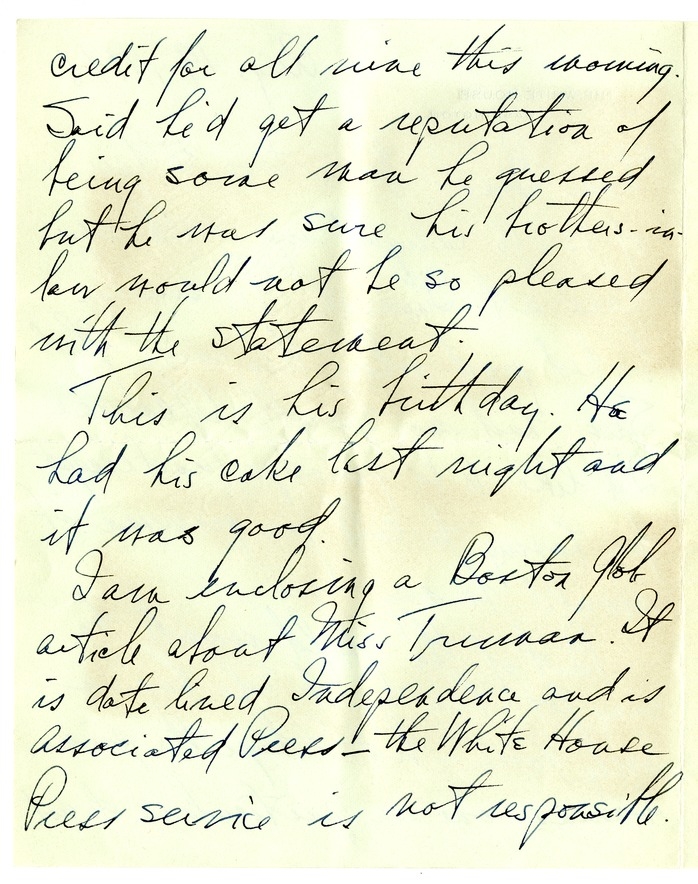 credit for all nine this morning.
Said he'd get a reputation of
being some man he guessed
but he was sure his brothers-in-
law would not be so pleased
with the statement.
This is his birthday. He
had his cake last night and
it was good.
I am enclosing a Boston Glob
article about Miss Truman. It
is date lined Independence and is
Associated Press - the White House
Press service is not responsible.